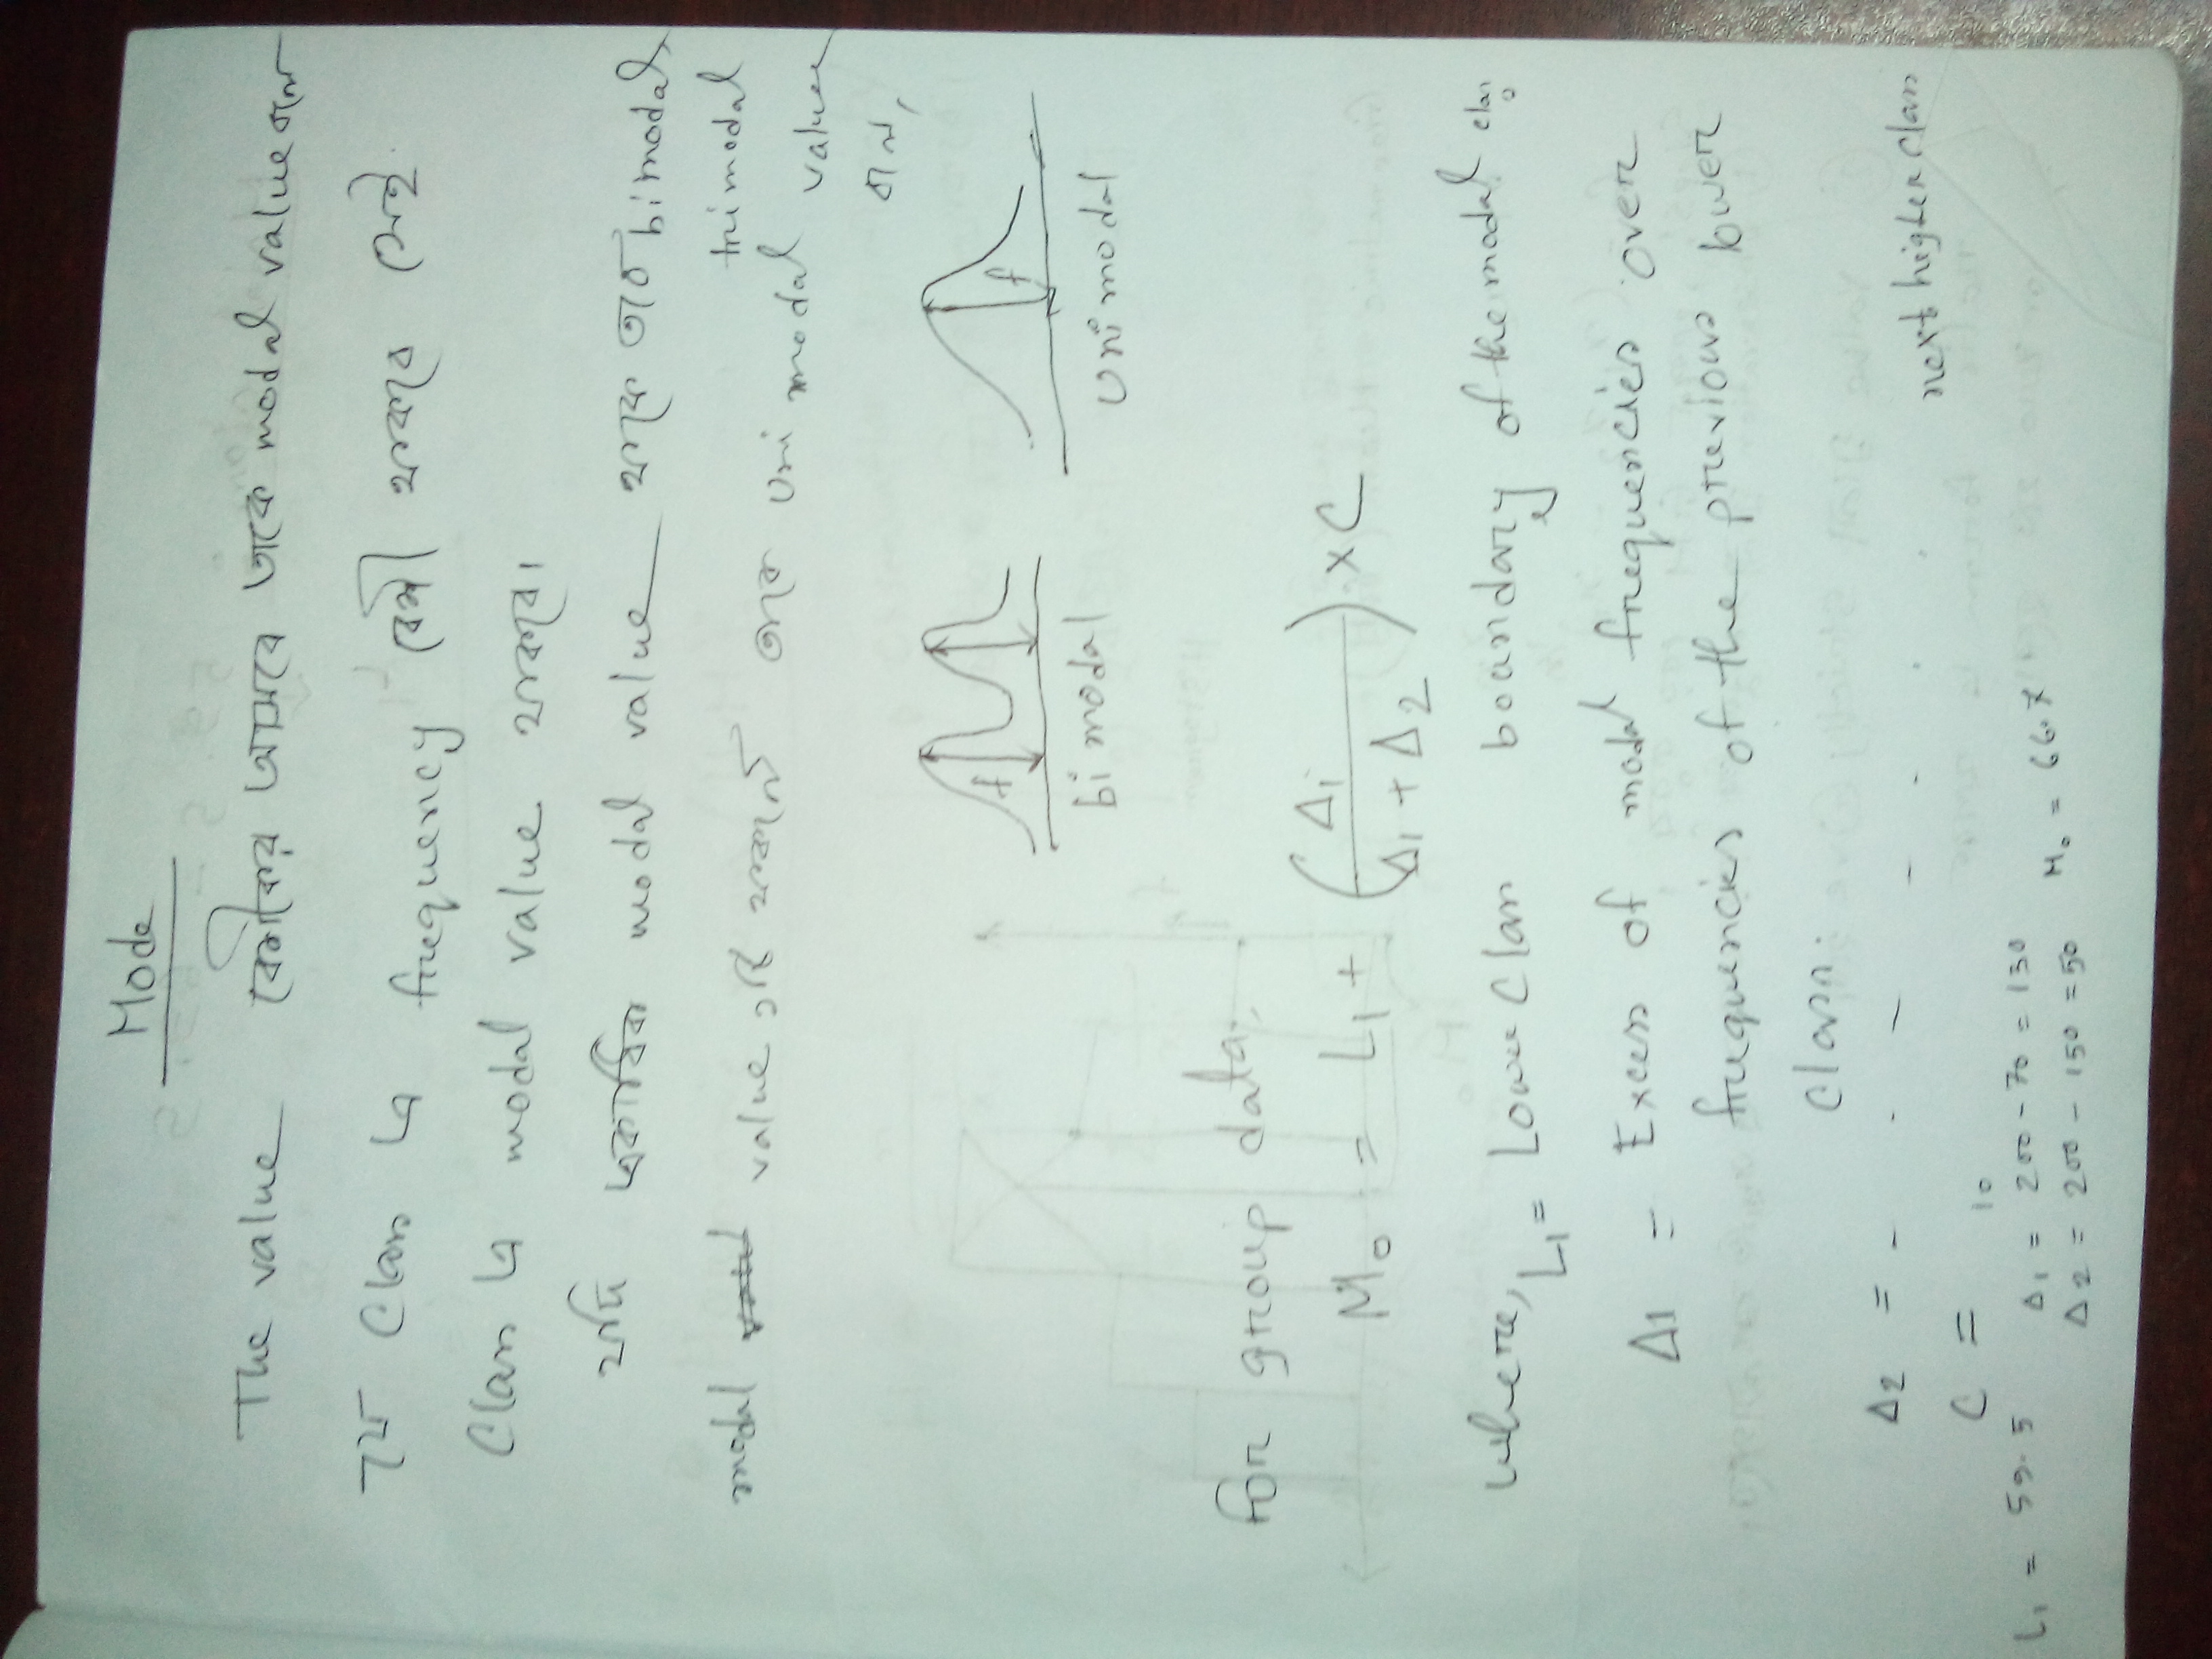 Mode
The value বেশীবার আসবে তাকে modal value বলে
যে Class এ frequency বেশী থাকবে সেই
Class এ modal value থাকবে।
যদি একাধিক modal value থাকে তাকে bimodal,
trimodal
modal value ১টি থাকলে তাকে uni modal value
বলে,
f
f
bi modal
unimodal
For group data,
M₀ = L₁ + (Δ₁ / Δ₁ + Δ₂) × C
where, L₁ = Lower Class boundary of the modal class
Δ1 = Excess of modal frequencies over
frequencies of the previous lower
Class.
Δ2 = - - - - - next higher class
C = 10
L₁ = 59.5 Δ₁ = 200 - 70 = 130 M₀ = 66.7
Δ2 = 200 - 150 = 50